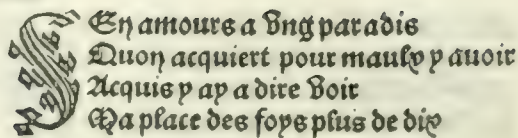 SEn amours a vng paradis
Quon acquiert pour maulx y auoir
Acquis y ay a dire voir
Ma place des foys plus de dix